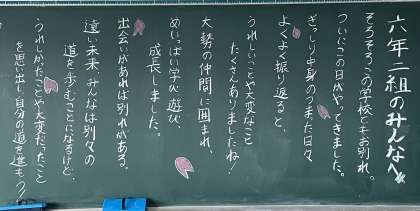 六年二組のみんなへ
そろそろこの学校ともお別れ。
ついにこの日がやってきました。
ぎっしり中身のつまった日々、
よくよく振り返ると、
うれしいことや大変なこと
たくさんありましたね!
大勢の仲間に囲まれ、
めいっぱい学び遊び、
成長しました。
出会いがあれば別れがある。
遠い未来みんなは別々の
道を歩むことになるけど、
うれしかったことや大変だったこと
を思い出し、自分の道を進もう!